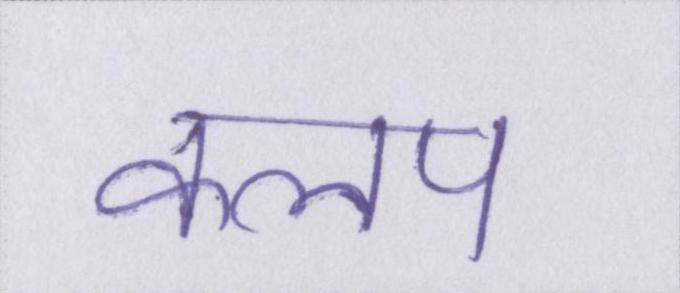 कलप